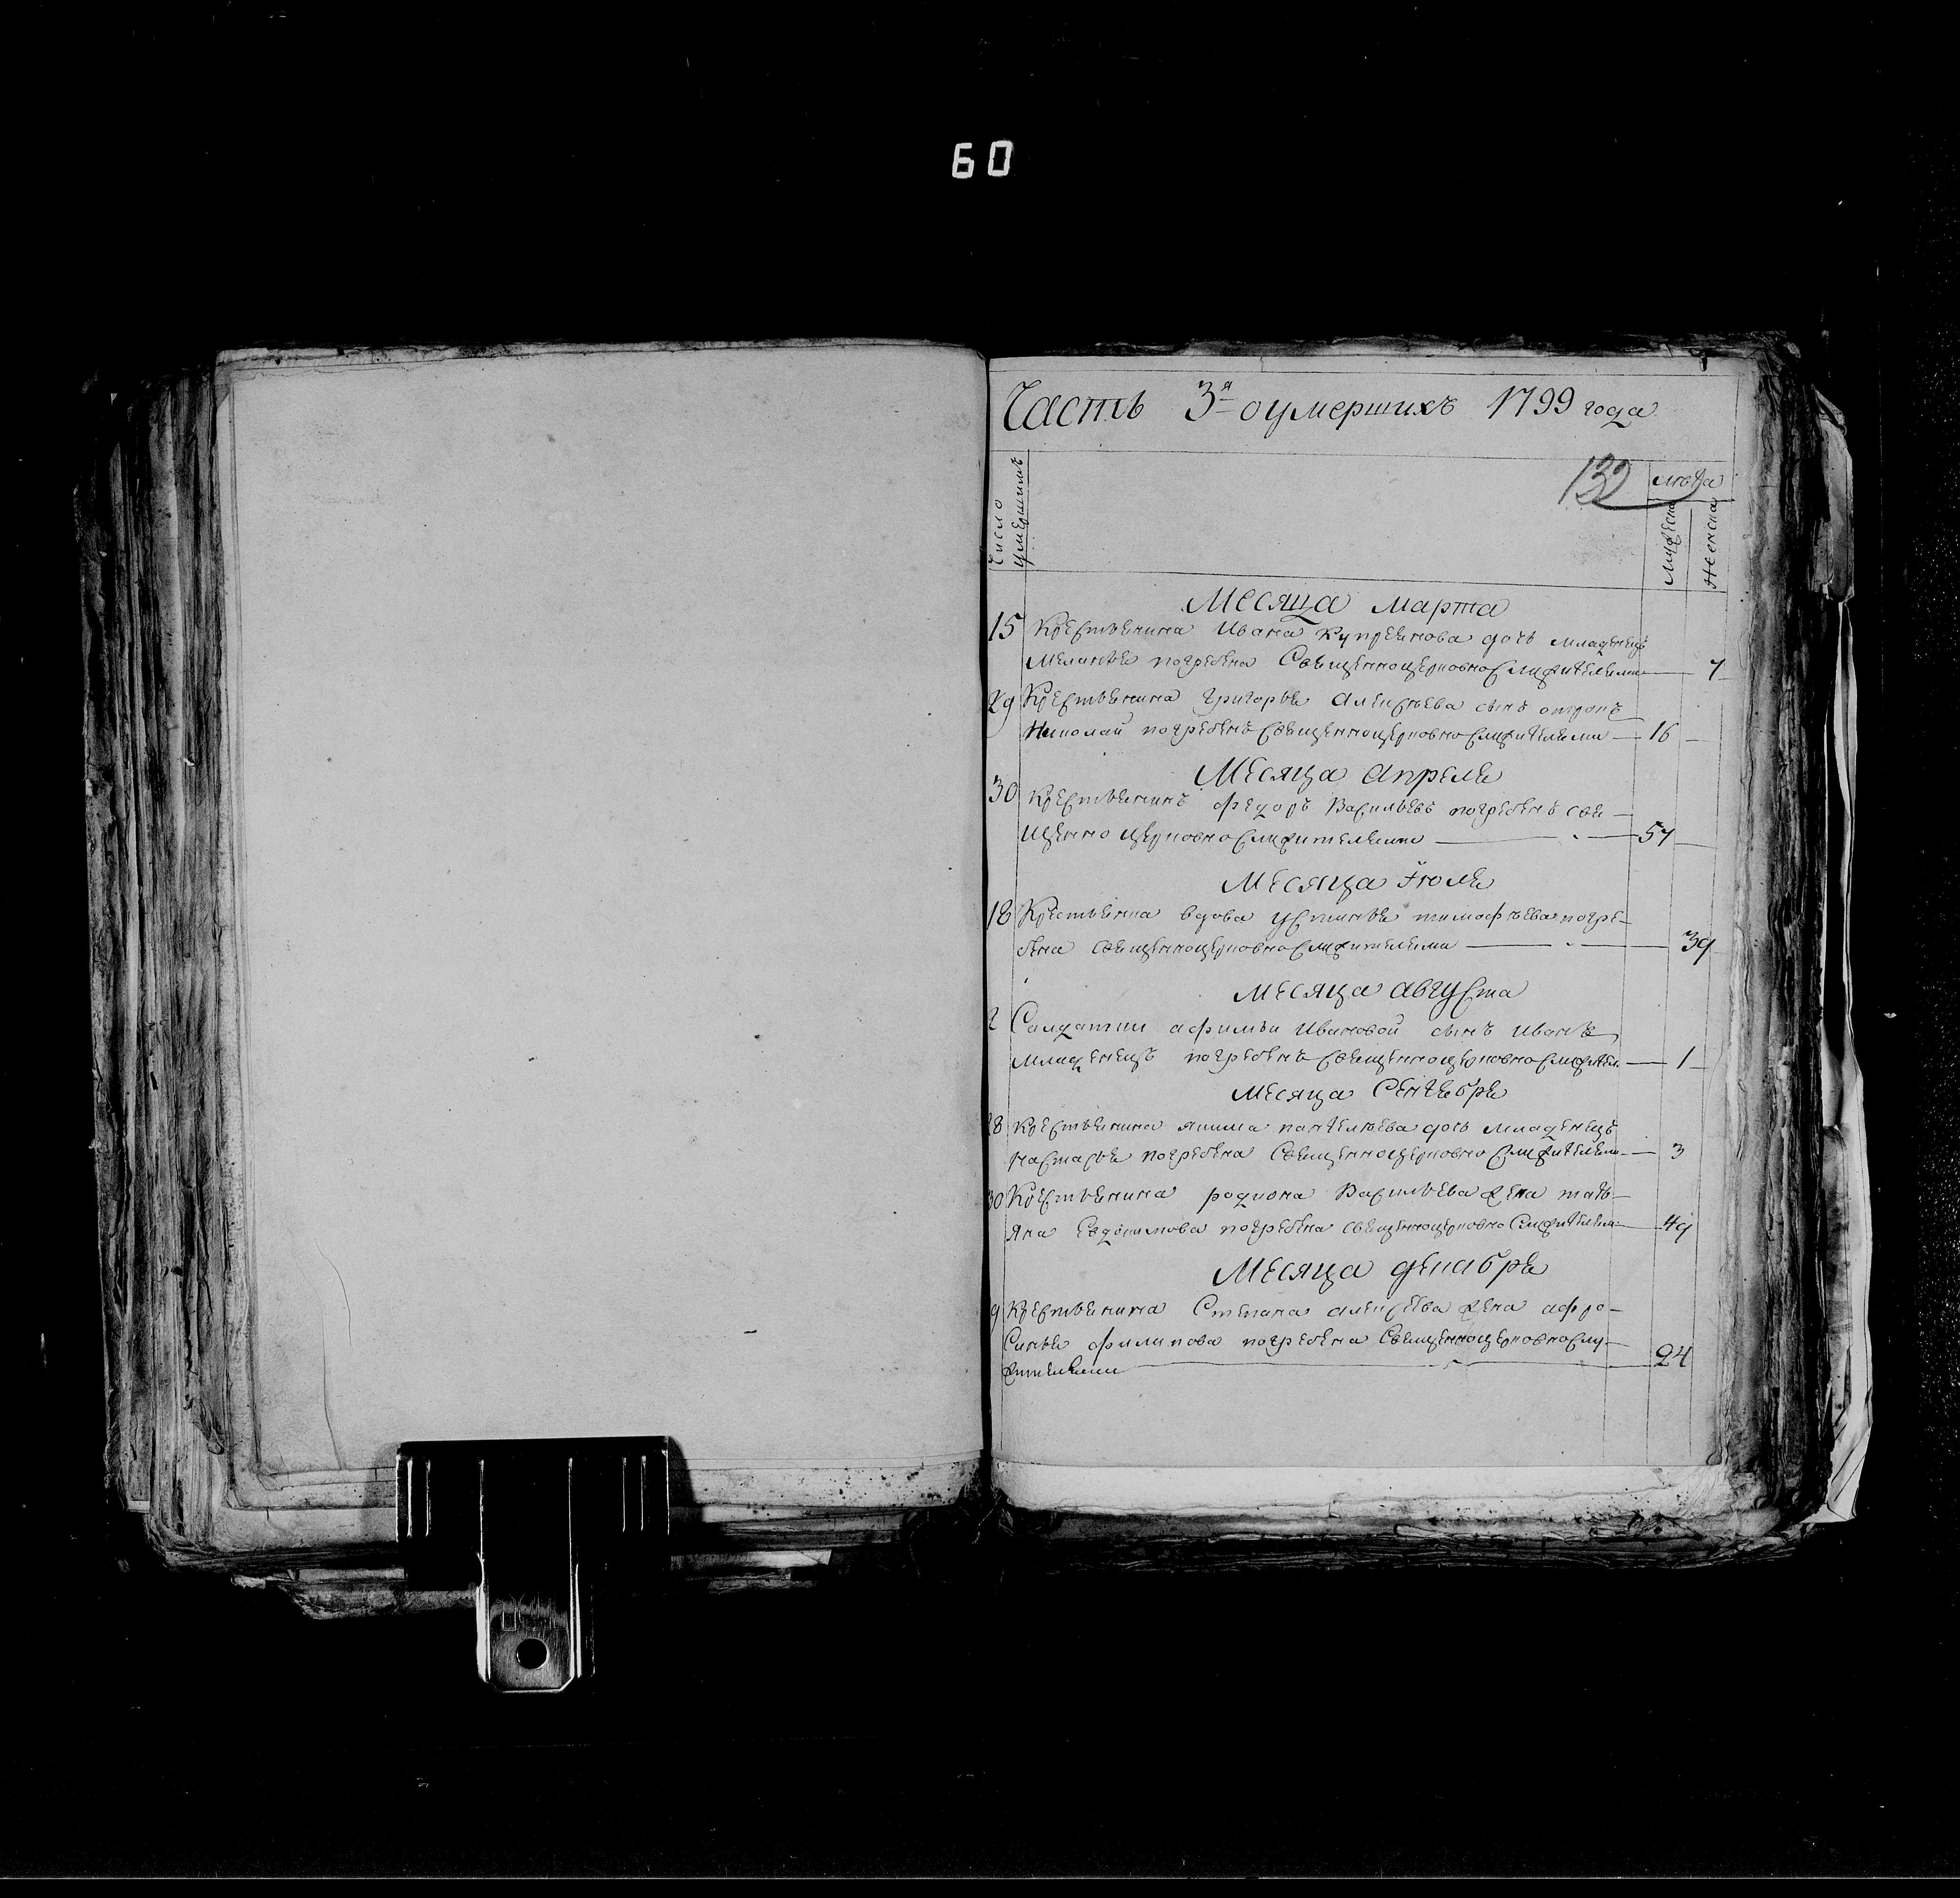 60
Часть 3я о умершихъ 1799 года
132
Число умершимъ
лѣта
Мужеска
Женска
Месяца марта
15 Крестьянина Ивана Купреянова дочь младенецъ
Меланья погребена Священноцерковнослужителями — 7
29 Крестьянина Григорья Алексѣева сынъ отрокъ
Николай погребенъ Священноцерковнослужителями — 16
Месяца Апреля
30 Крестьянинъ Федоръ Васильевъ погребенъ свя-
щенно церковнослужителями — 57
Месяца Июля
18 Крестьянка вдова Устинья Тимофѣева погре-
бена священноцерковнослужителями — 39
Месяца Августа
2 Салдатки Афимьи Ивановой сынъ Иванъ
младенецъ погребенъ Священноцерковнослужител — 1
Месяца Сентября
28 Крестьянина Якима Пантелѣева дочь младенецъ
Настасья погребена Священноцерковно служителями — 3
30 Крестьянина Родиона Васильева жена Тать-
яна Евдокимова погребена священноцерковно служителям — 49
Месяца декабря
9 Крестьянина Степана Алексѣева жена Афро-
Синья Филипова погребена Священноцерковнослу-
жителями — 24